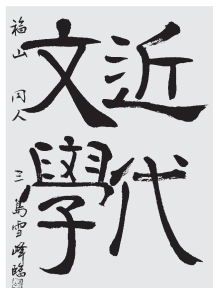 近代
文學
福山 円人 三島雪峰臨